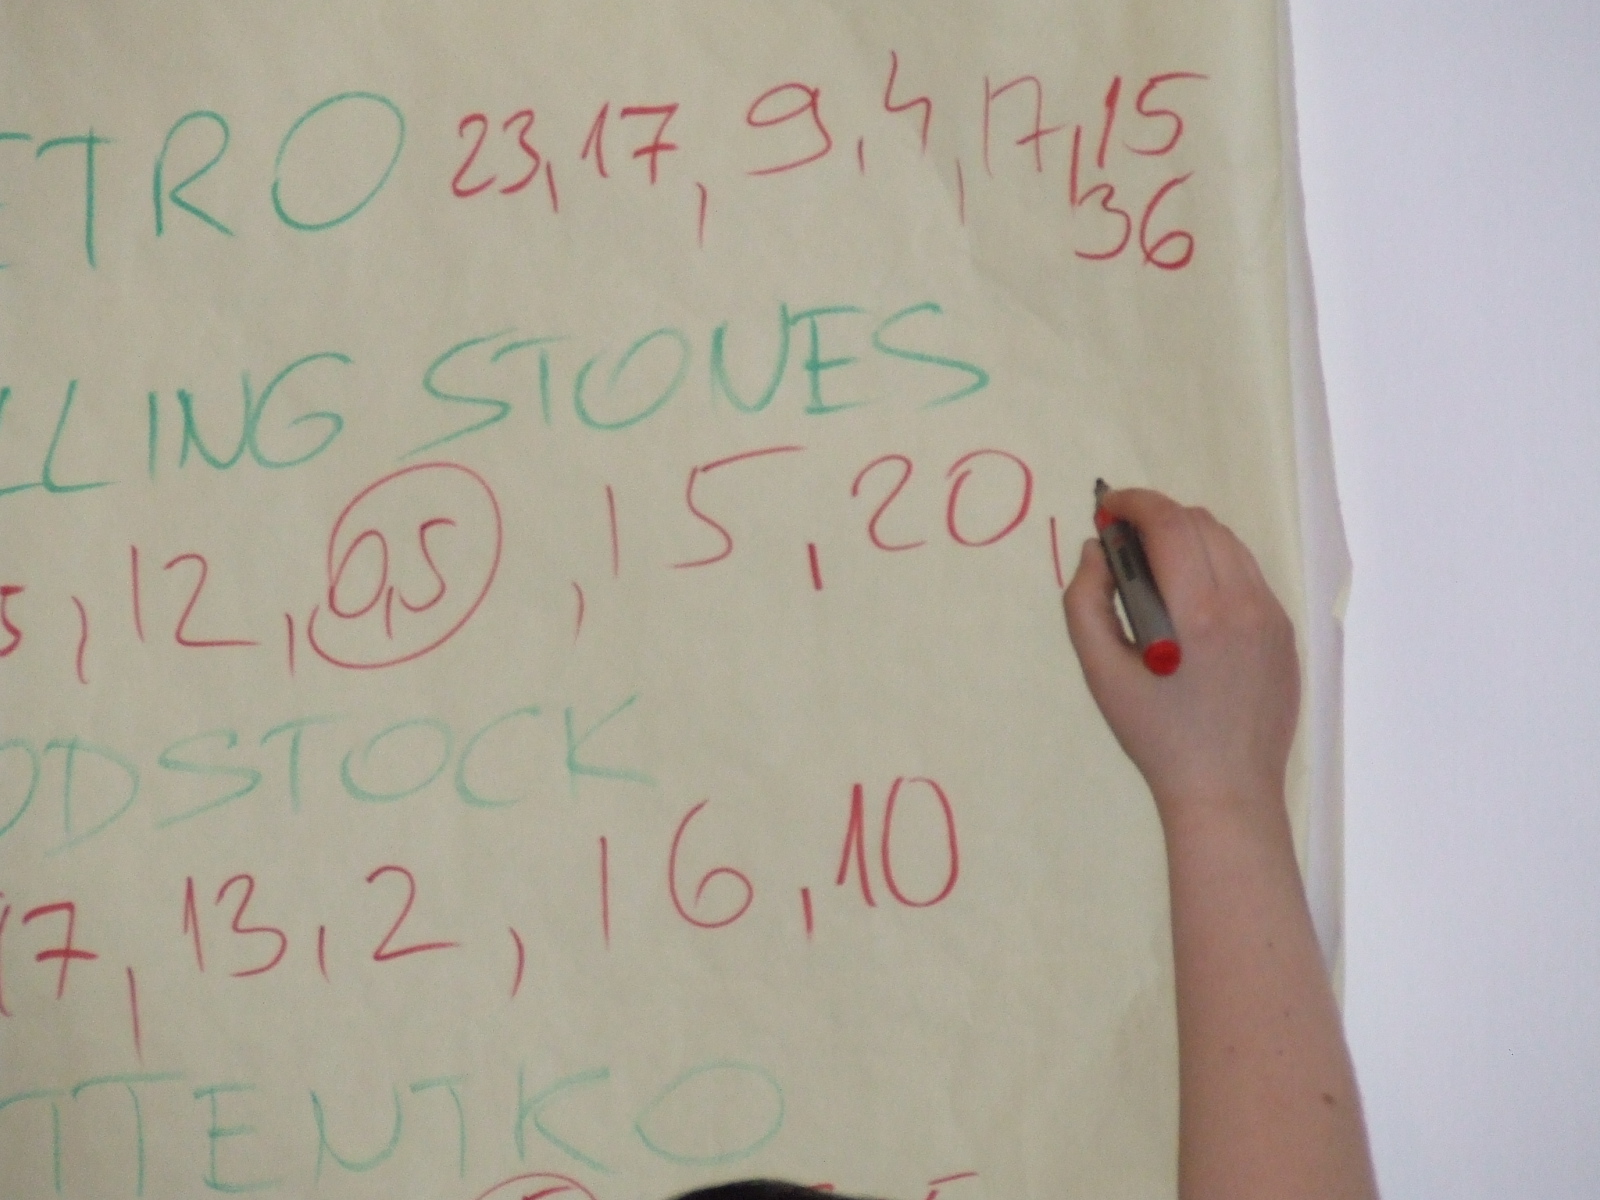 ETRO 23, 17, 9, 4, 17, 15
36
LLING STONES
5, 12, 0,5, 15, 20,
ODSTOCK
17, 13, 2, 16, 10
TTENTKO